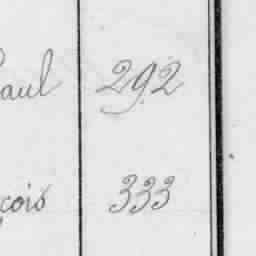 Paul 292
çois 333